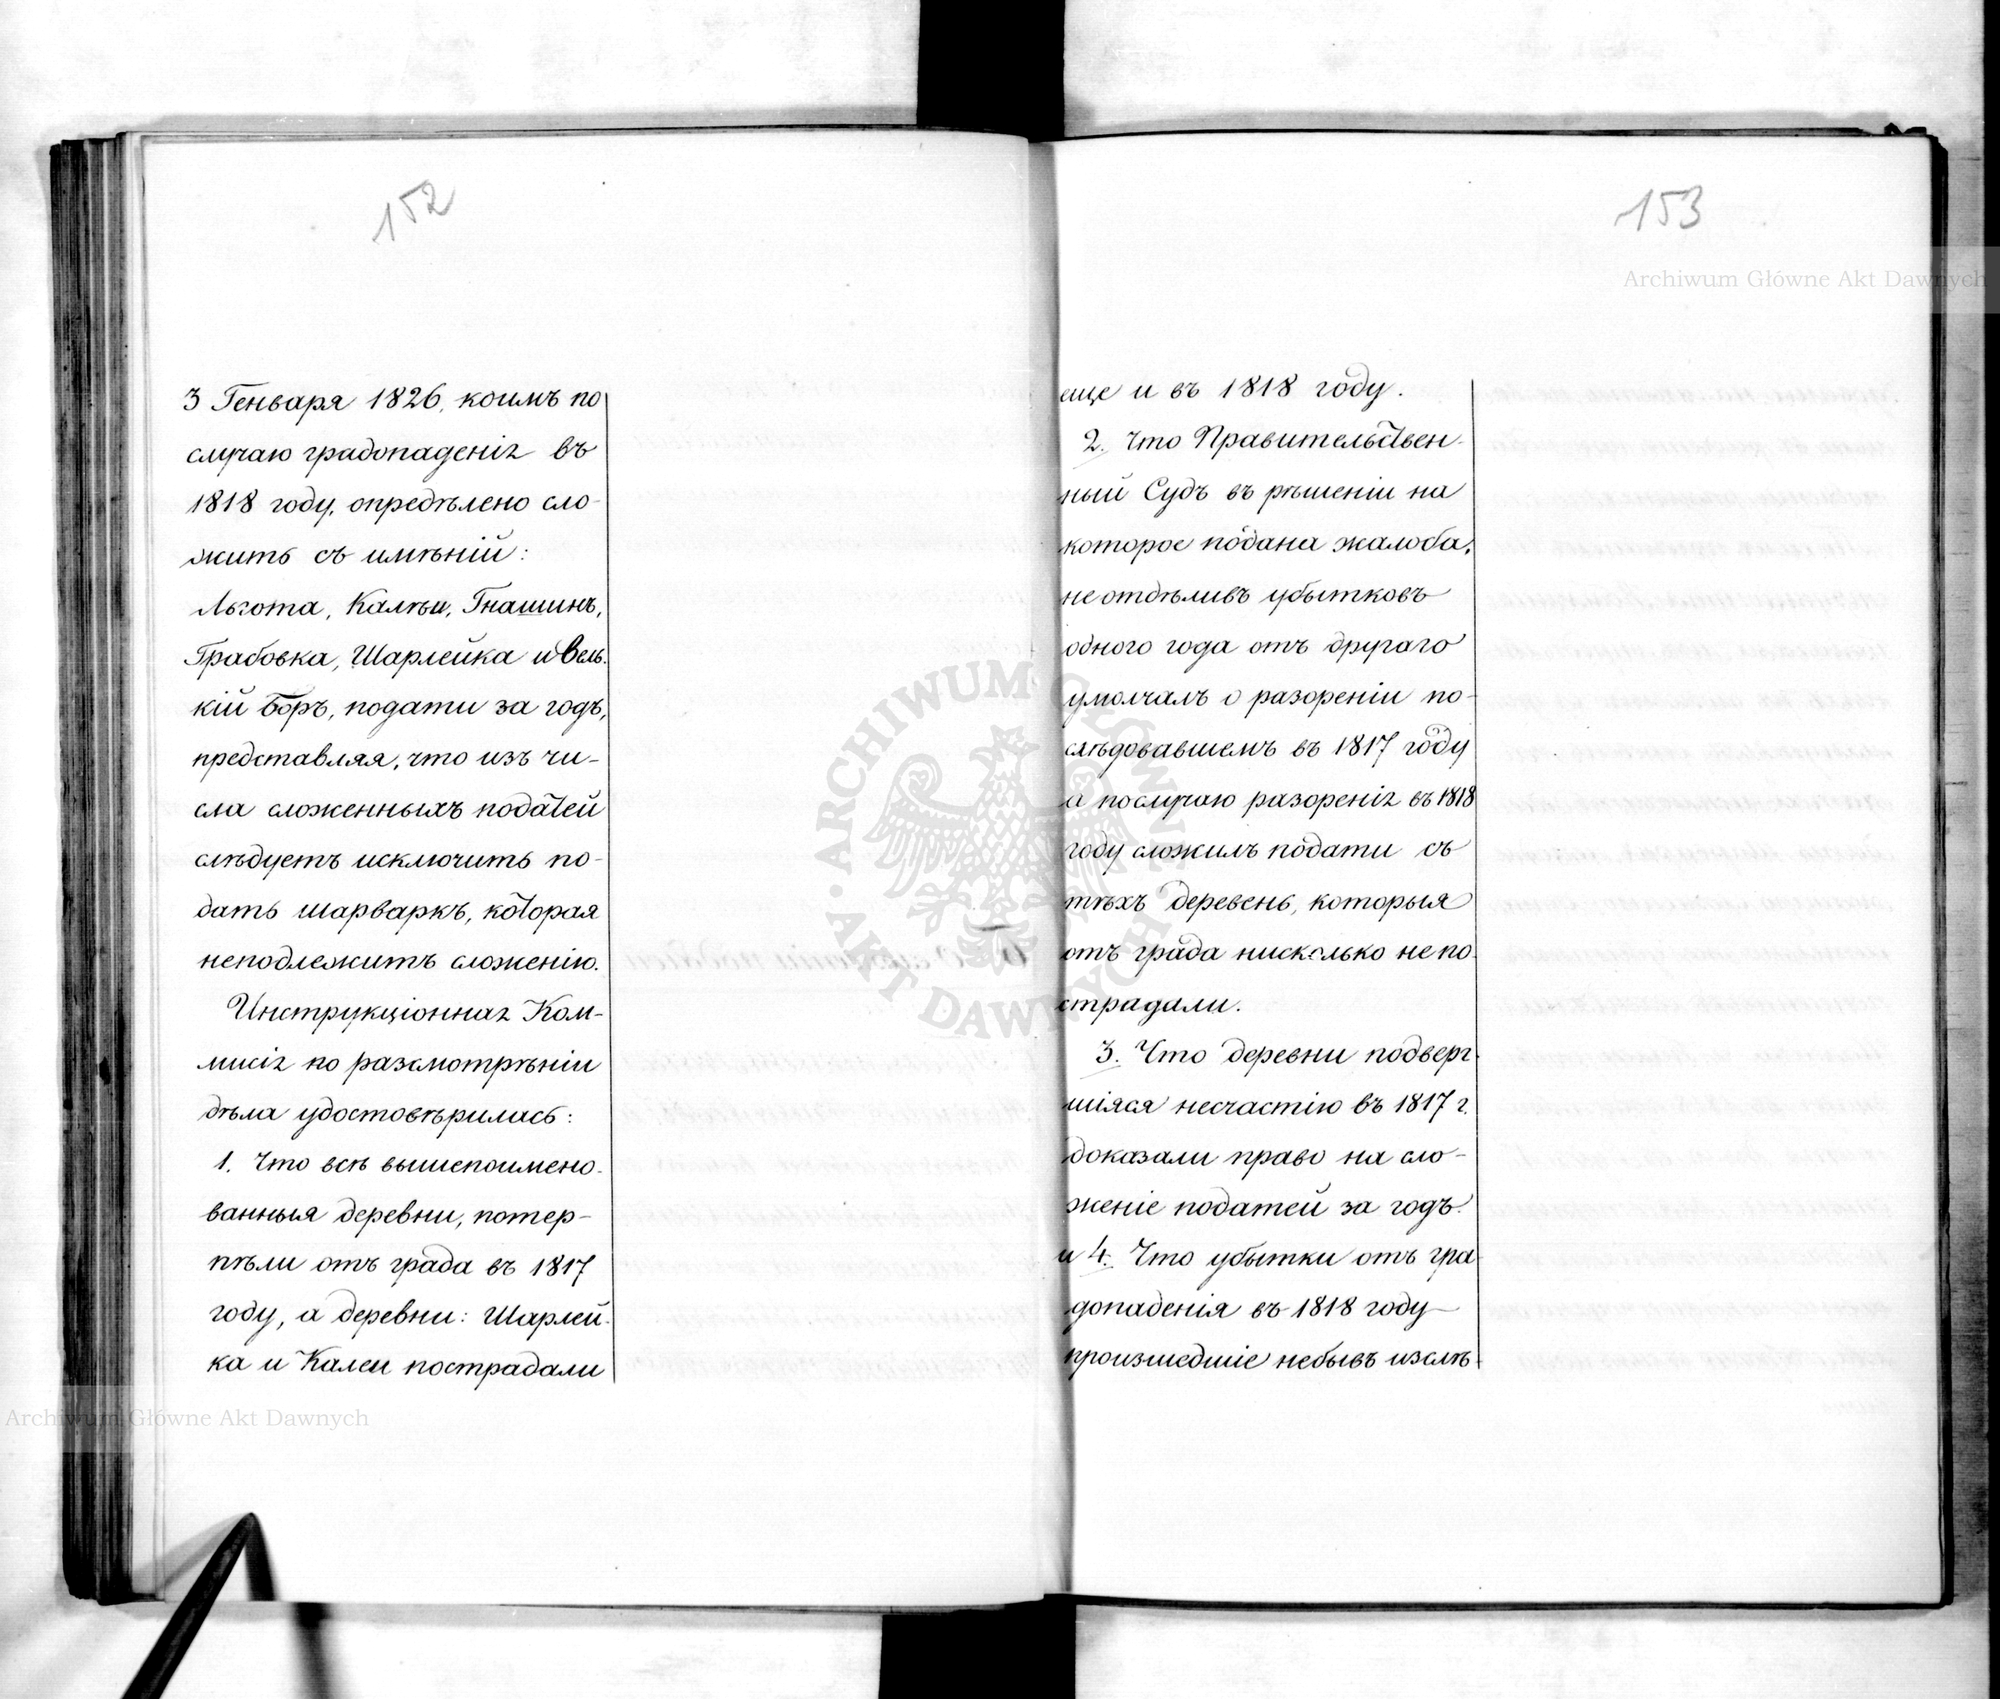 152
3 Генваря 1826, коимъ по
случаю градопаденія въ
1818 году, опредѣлено сло-
жить съ имѣній:
Льгота, Калѣи, Гнашинъ,
Грабовка, Шарлейка и Вель-
кій Боръ, подати за годъ,
представляя, что изъ чи-
сла сложенныхъ податей
слѣдуетъ исключить по-
дать шарваркъ, которая
неподлежитъ сложенію.
Инструкціонная Ком-
мисія по разсмотрѣніи
дѣла удостовѣрилась:
1. Что всѣ вышепоимено-
ванныя деревни, потер-
пѣли отъ града въ 1817
году, а деревни: Шарлей-
ка и Калеи пострадали
153
еще и въ 1818 году.
2. Что Правительствен-
ный Судъ въ рѣшеніи на
которое подана жалоба,
не отдѣливъ убытковъ
одного года отъ другаго
умолчалъ о разореніи по-
слѣдовавшемъ въ 1817 году
а послучаю разоренія въ 1818
году сложилъ подати съ
тѣхъ деревень, которыя
отъ града нисколько непо-
страдали.
3. Что деревни подверг-
шіяся несчастію въ 1817 г.
доказали право на сло-
женіе податей за годъ.
и 4. Что убытки отъ гра-
допаденія въ 1818 году
произшедшіе небывъ изслѣ-
Archiwum Główne Akt Dawnych
Archiwum Główne Akt Dawnych
ARCHIWUM GŁÓWNE AKT DAWNYCH